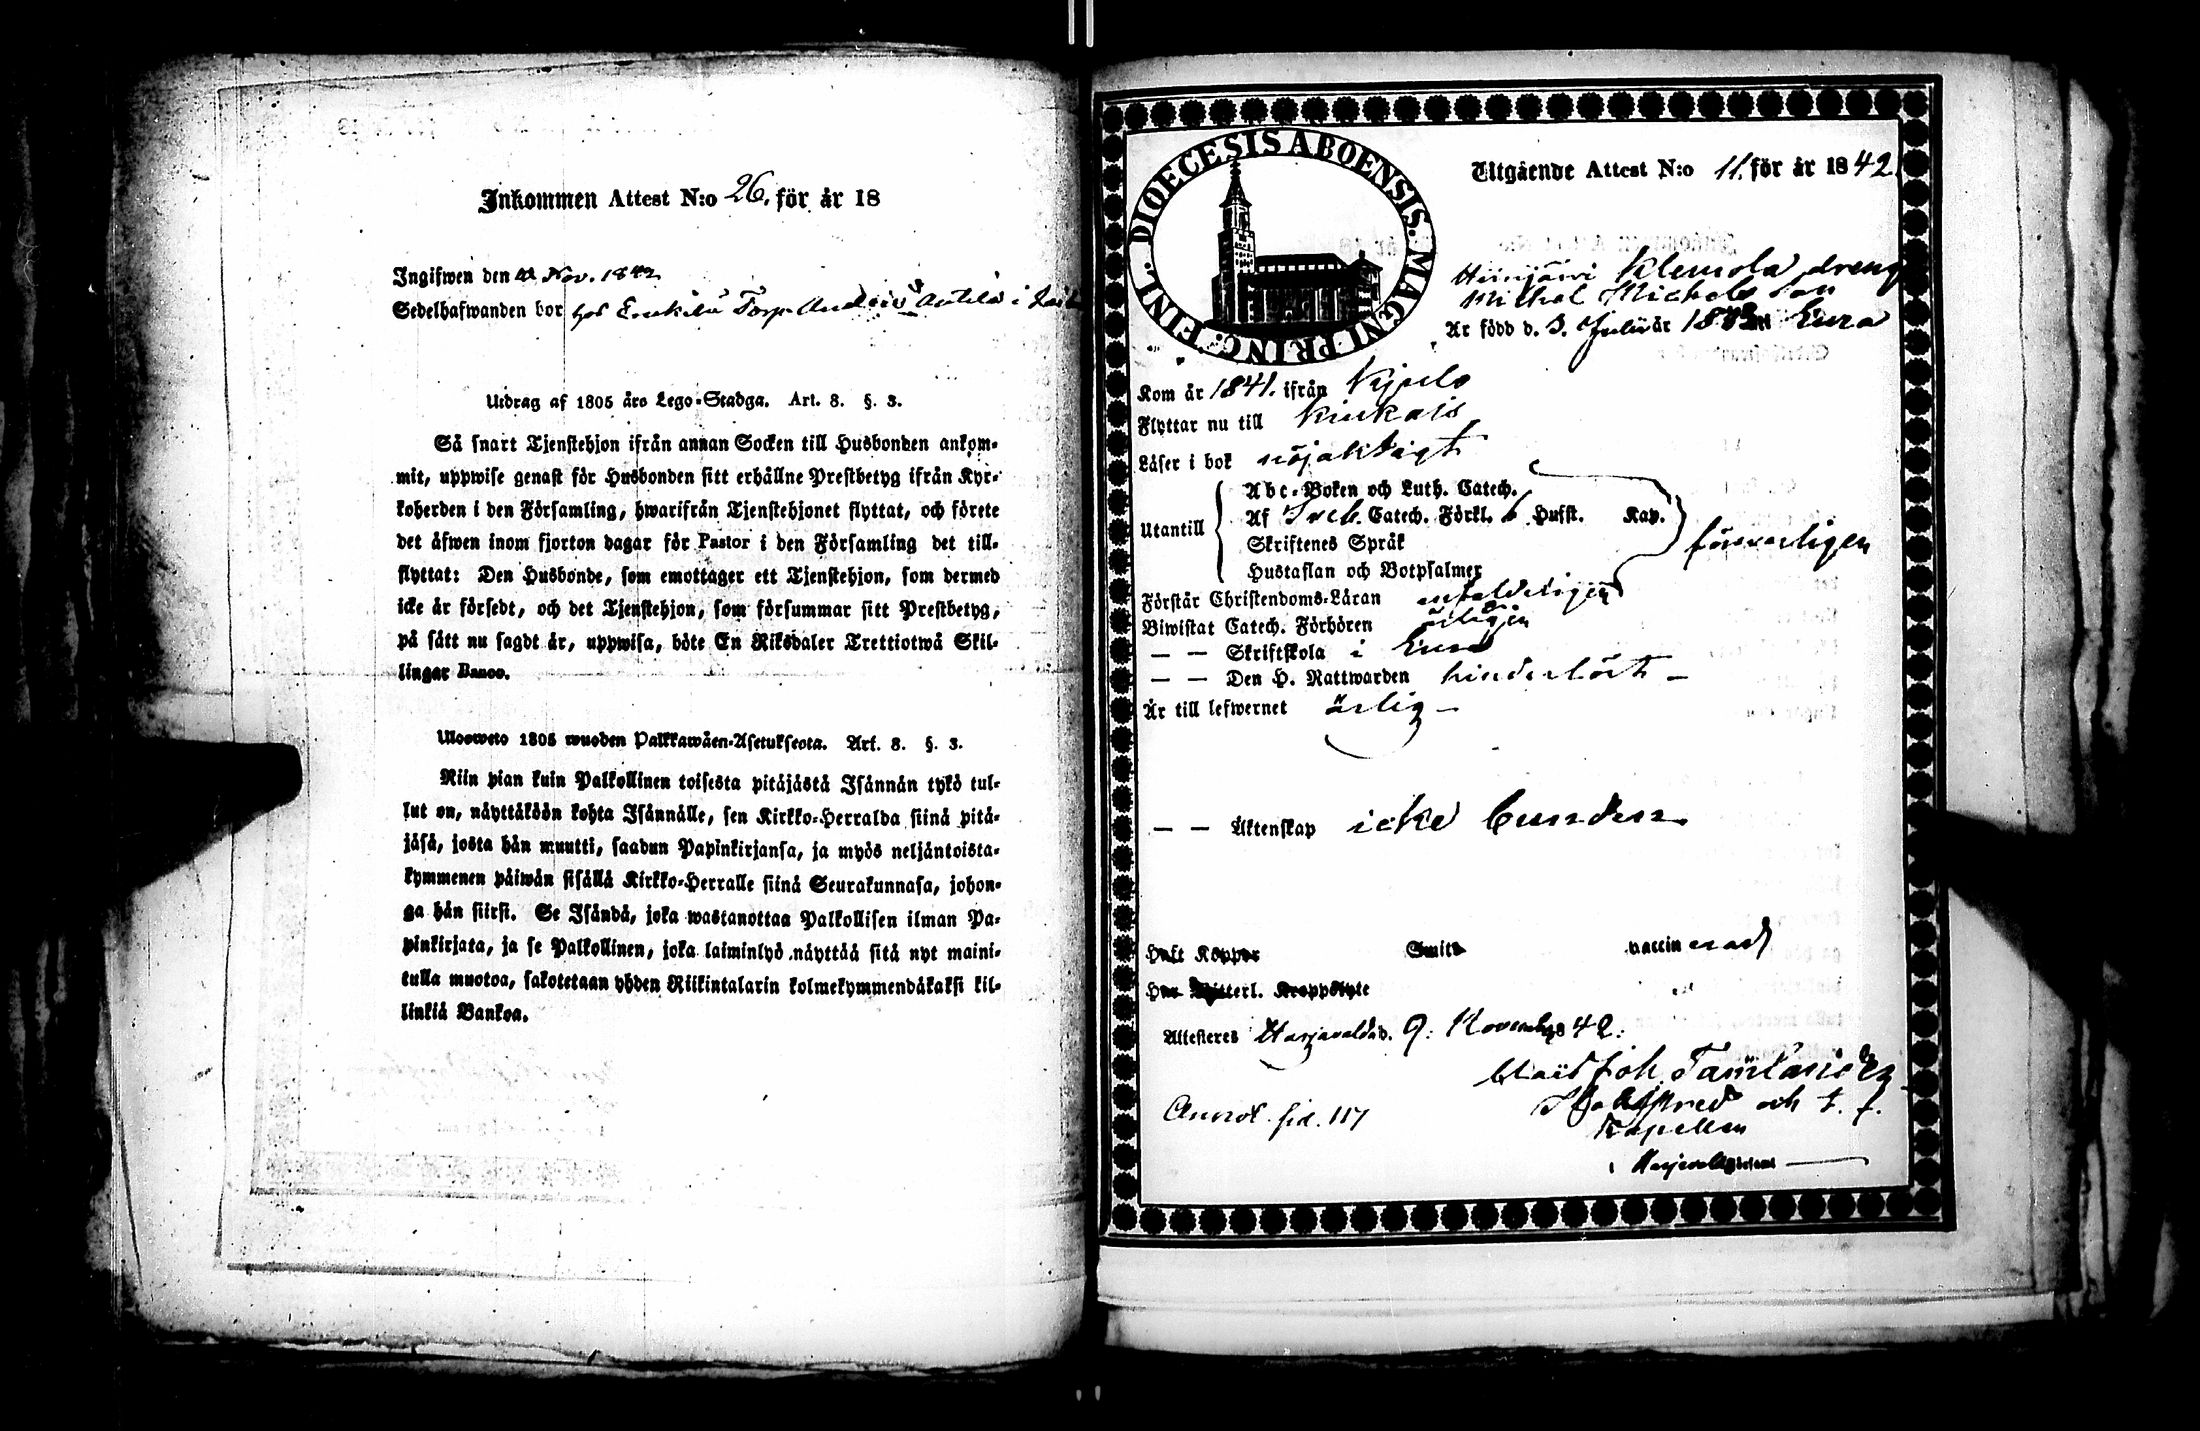 Inkommen Attest N:o 26. för år 18
Ingifwen den Nov. 1842
Sedelhafwanden bor hos Torp. i
Utdrag af 1805 års Lego-Stadga. Art. 8. §. 3.
Så snart Tjenstehjon ifrån annan Socken till Husbonden ankom-
mit, uppwise genast för Husbonden sitt erhållne Prestbetyg ifrån Kyr-
koherden i den Församling, hwarifrån Tjenstehjonet flyttat, och förete
det äfwen inom fjorton dagar för Pastor i den Församling det till-
flyttat: Den Husbonde, som emottager ett Tjenstehjon, som dermed
icke är försedt, och det Tjenstehjon, som försummar sitt Prestbetyg,
på sätt nu sagdt är, uppwisa, böte En Riksdaler Trettiotwå Skil-
lingar Banco.
Ulosweto 1805 wuoden Palkkawäen-Asetuksesta. Art. 8. §. 3.
Niin pian kuin Palkollinen toisesta pitäjästä Isännän tykö tul-
lut on, näyttäköön kohta Isännälle, sen Kirkko-Herralda siinä pitä-
jäsä, josta hän muutti, saadun Papinkirjansa, ja myös neljäntoista-
kymmenen päiwän sisällä Kirkko-Herralle siinä Seurakunnasa, johon-
ga hän siirsi. Se Isändä, joka wastanottaa Palkollisen ilman Pa-
pinkirjata, ja se Palkollinen, joka laiminlyö näyttää sitä nyt maini-
tulla muotoa, sakotetaan yhden Riikintalarin kolmekymmendäkaksi kil-
linkiä Bankoa.
DIOECESIS ABOENSIS. MAGNI PRINC. FINL.
Utgående Attest N:o 11. för år 1842
Hiinjärvi Klemola dreng
Michel Michelsson
Är född d. 3. Julii år i Eura
Kom år 1841. ifrån Kjulo
Flyttar nu till Kiukais
Läser i bok nöjaktigt
Utantill
Abc-Boken och Luth. Catech.
Af Sveb. Catech. Förkl. 6 Hufst. Kap.
Skriftenes Språk
Hustaflan och Botpsalmer
försvarligen
Förstår Christendoms-Läran enfaldeligen
Biwistat Catech. Förhören årligen
— — Skriftskola i Eura
— — Den H. Nattwarden hinderlöst —
Är till lefwernet ärlig —
— — Äktenskap icke bunden
Haft Koppor Smitt- vaccinerad
Har Witterl. Kroppslyte
Attesteres Harjavalda d. 9. November 1842.
Joh.
och t. f.
Kapellan
i
Annot. sid. 117